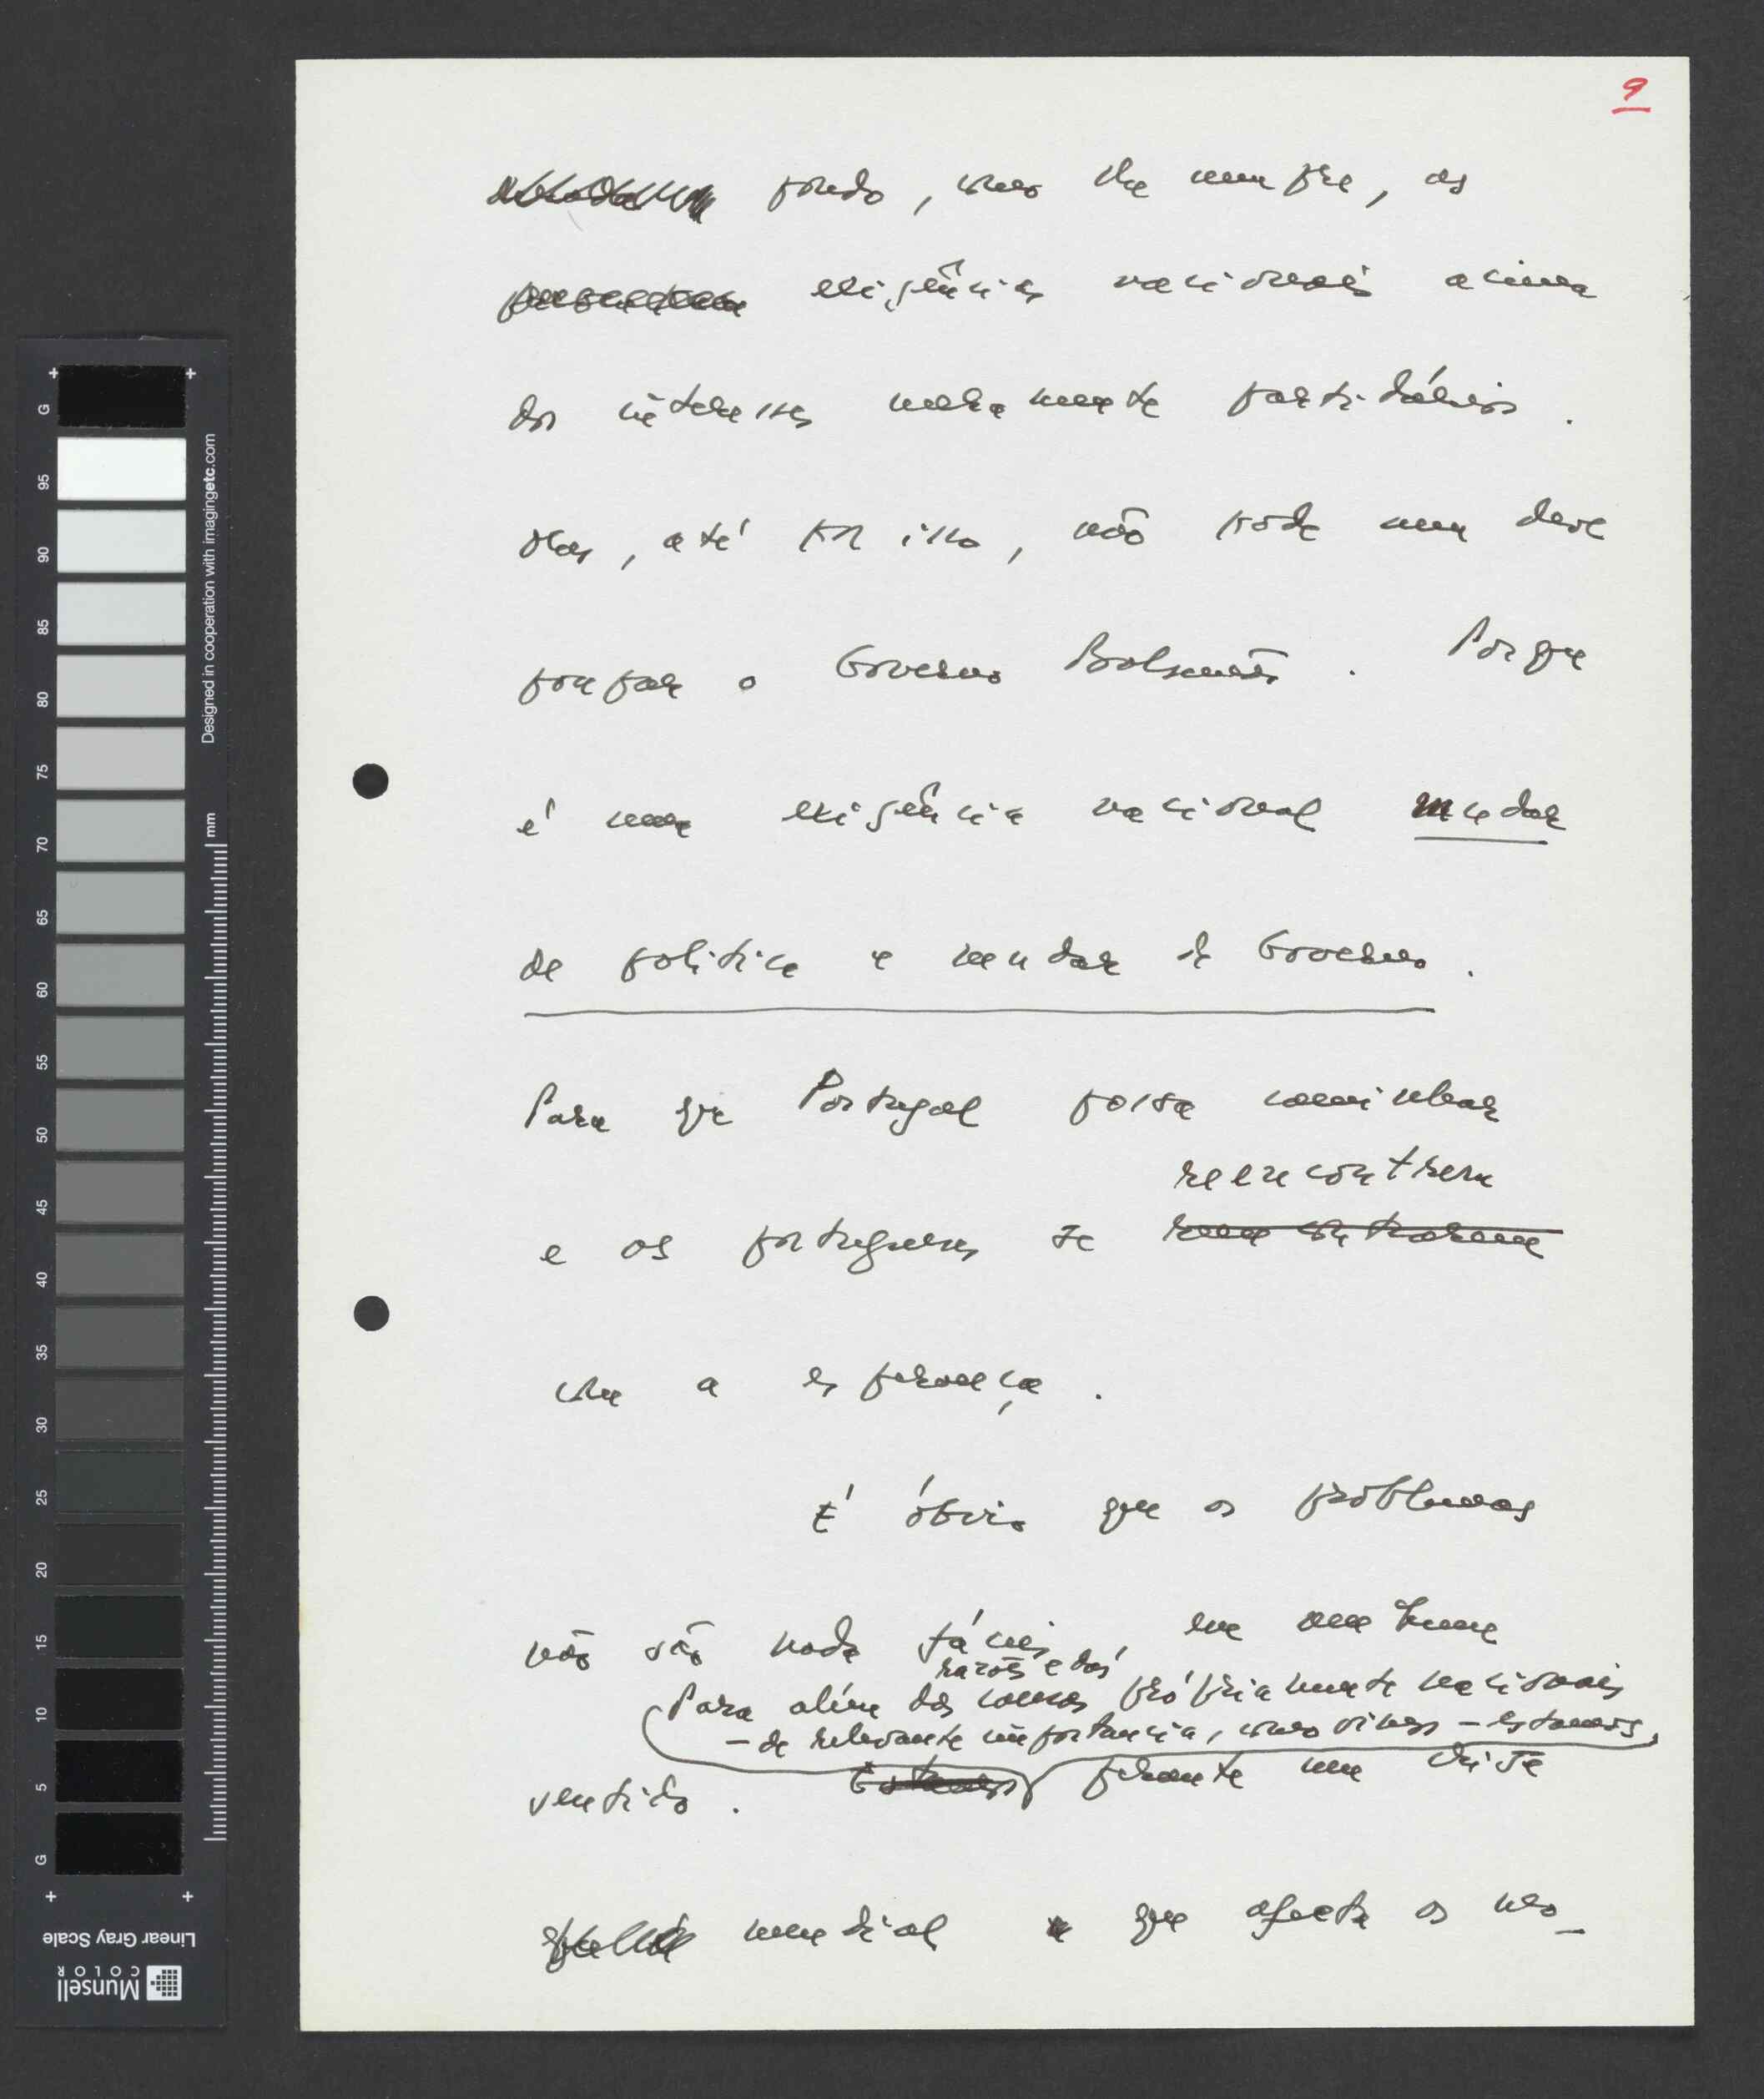 9
pondo, como lhe cumpre, as
exigências nacionais acima
dos interesses meramente partidários.
Mas, até por isso, não pode nem deve
poupar o Governo Balsemão. Porque
é uma exigência nacional mudar
de politica e mudar de Governo.
Para que Portugal possa caminhar
reencontrem
e os portugueses se reencontrarem
com a esperança.
É óbvio que os problemas
não são nada fáceis, em nenhum
razões e das
Para além das causas própriamente nacionais
- de relevante importancia, como vimos - estamos,
sentido. Estamos perante uma crise
mundial que afecta os no-
G
95
90
85
80
75
70
65
60
55
50
45
40
35
30
25
20
15
10
5
G
Designed in cooperation with imagingetc.com
mm
Linear Gray Scale
Munsell
COLOR